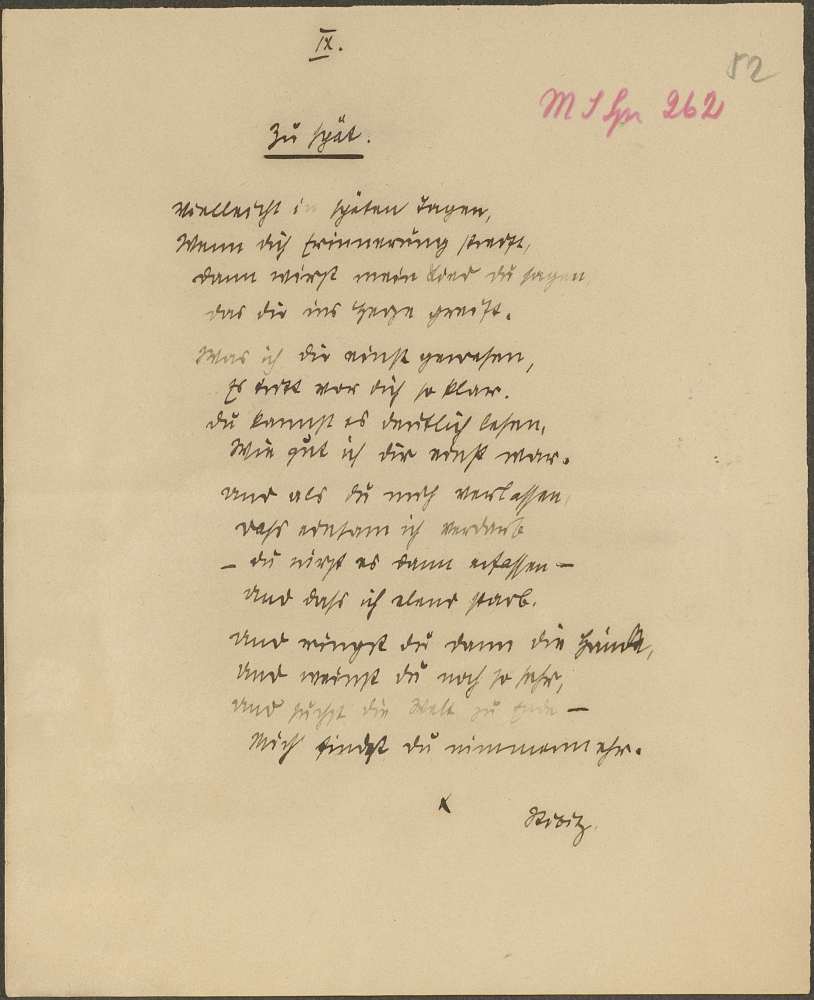 IX.
52
M S Spr 262
Zu spät.
Vielleicht in späten Tagen,
Wenn dich Erinnerung streift,
dann wirst mein Lied du sagen,
das dir ins Herze greift.
Was ich dir einst gewesen,
Es tritt vor dich so klar.
du kannst es deutlich lesen,
Wie gut ich dir einst war.
und als du mich verlassen,
dass einsam ich verdarb
– du wirst es dann erfassen –
und dass ich elend starb.
und ringst du dann die Hände,
und weinst du noch so sehr,
und suchst die Welt zu Ende –
Mich findst du nimmermehr.
x